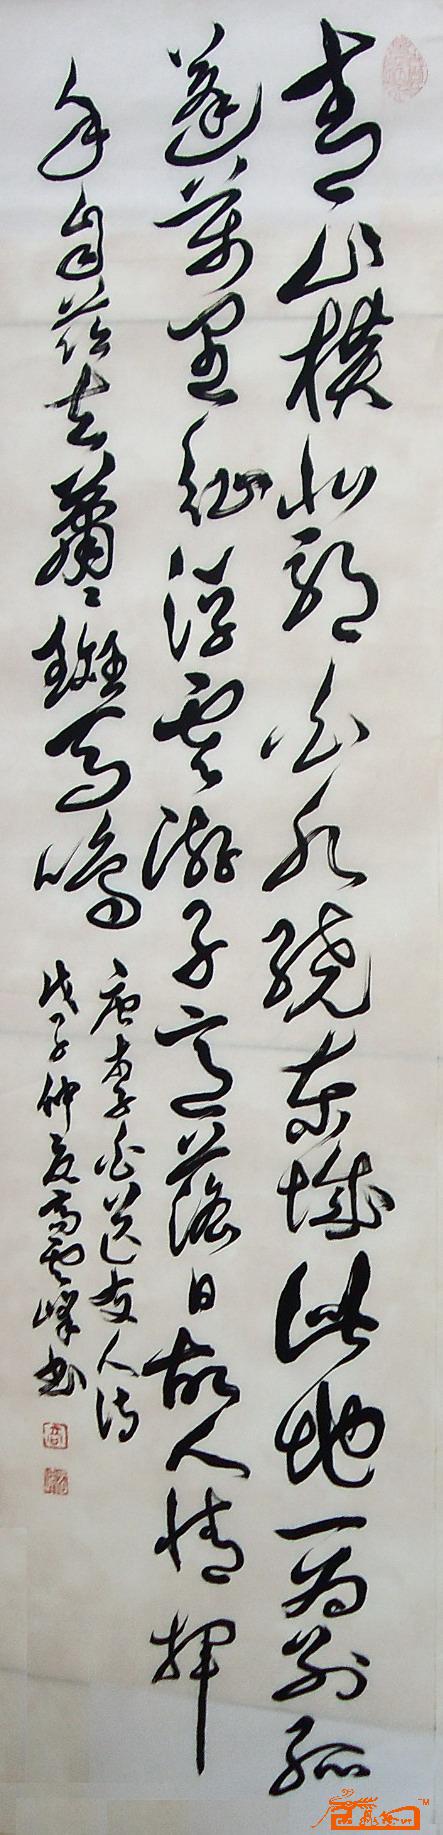 青山横北郭白水绕东城此地一为别孤
蓬万里征浮云游子意落日故人情挥
手自兹去萧々班马鸣
唐李白送友人诗
戊子仲夏高云峰书